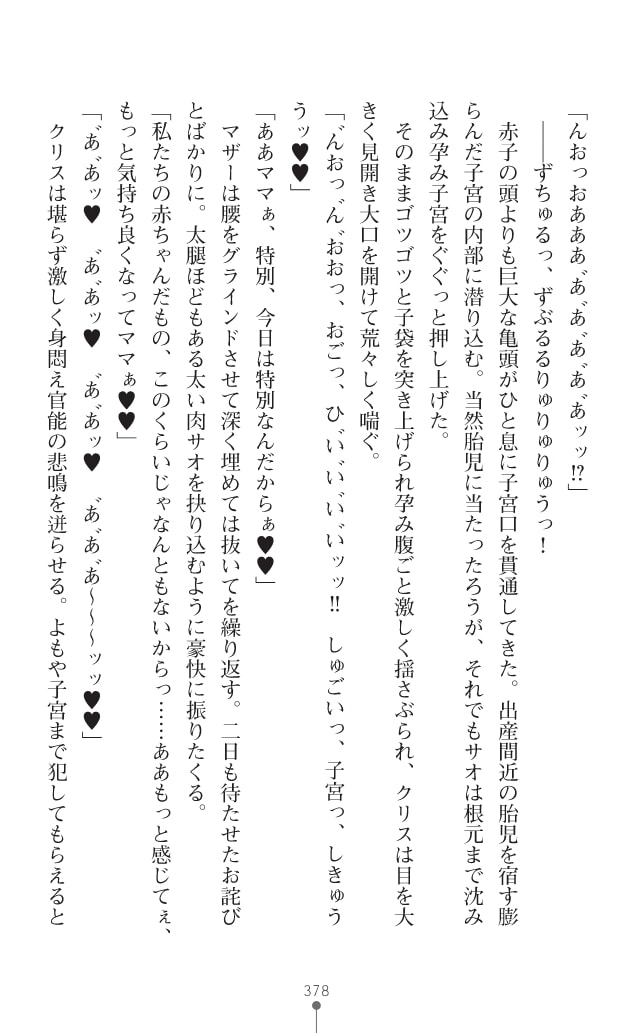 「んおっおあああ゛あ゛あ゛あ゛あ゛あッッ⁉」
　――ずちゅるっ、ずぶるるりゅりゅりゅうっ！
　赤子の頭よりも巨大な亀頭がひと息に子宮口を貫通してきた。出産間近の胎児を宿す膨
らんだ子宮の内部に潜り込む。当然胎児に当たったろうが、それでもサオは根元まで沈み
込み孕み子宮をぐぐっと押し上げた。
　そのままゴツゴツと子袋を突き上げられ孕み腹ごと激しく揺さぶられ、クリスは目を大
きく見開き大口を開けて荒々しく喘ぐ。
「゛んおっ゛ん゛おおっ、おごっ、ひ゛い゛い゛い゛いッッ‼　しゅごいっ、子宮っ、しきゅう
うッ♥♥」
「ああママぁ、特別、今日は特別なんだからぁ♥♥」
　マザーは腰をグラインドさせて深く埋めては抜いてを繰り返す。二日も待たせたお詫び
とばかりに。太腿ほどもある太い肉サオを抉り込むように豪快に振りたくる。
「私たちの赤ちゃんだもの、このくらいじゃなんともないからっ……ああもっと感じてぇ、
もっと気持ち良くなってママぁ♥♥」
「゛あ゛あッ♥　゛あ゛あッ♥　゛あ゛あッ♥　゛あ゛あ゛あ～～～ッッ♥♥」
　クリスは堪らず激しく身悶え官能の悲鳴を迸らせる。よもや子宮まで犯してもらえると
378